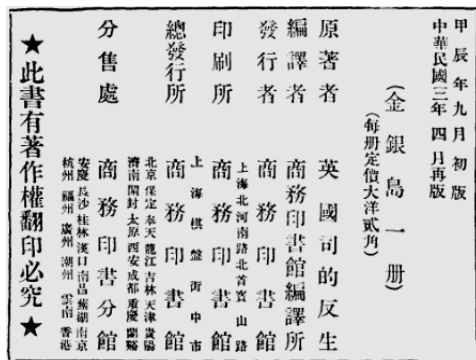 甲辰年九月初版
中華民國三年四月再版
(金銀島一册)
(每册定價大洋貳角)
原著者 英國司的反生
編譯者 商務印書館編譯所
發行者 商務印書館
上海北河南路北首寶山路
印刷所 商務印書館
上海棋盤街中市
總發行所 商務印書館
北京保定奉天龍江吉林天津
濟南開封太原西安成都重慶
分售處 商務印書分館
安慶長沙桂林漢口南昌蕪湖南京
杭州福州廣州潮州雲南香港
★此書有著作權翻印必究★